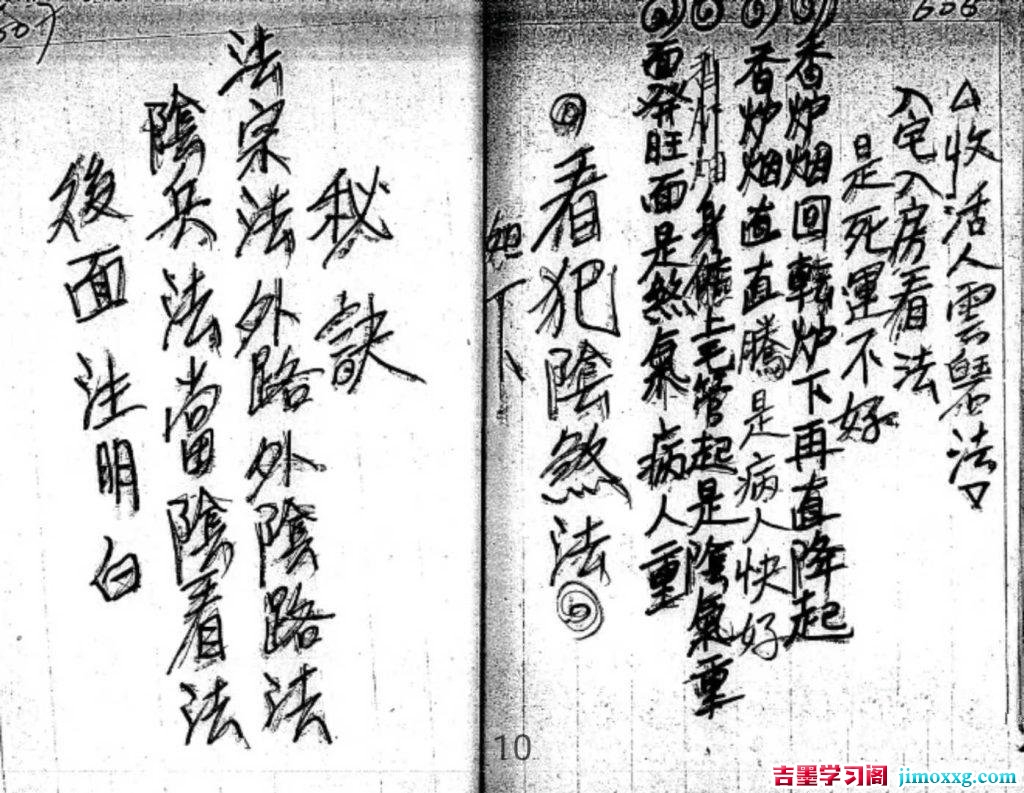 606
△收活人雲法
入宅入房看法
是死運不好
香炉烟回轉炉下再直降起
香炉烟直直騰是病人快好
香炉烟身體上毛管起是陰氣重
面発旺面是煞氣病人重
看犯陰煞法
下
507
秘訣
法宗法外路外陰路法
陰兵法當陰看法
後面注明白
10
吉墨学习阁 jimoxxg.com